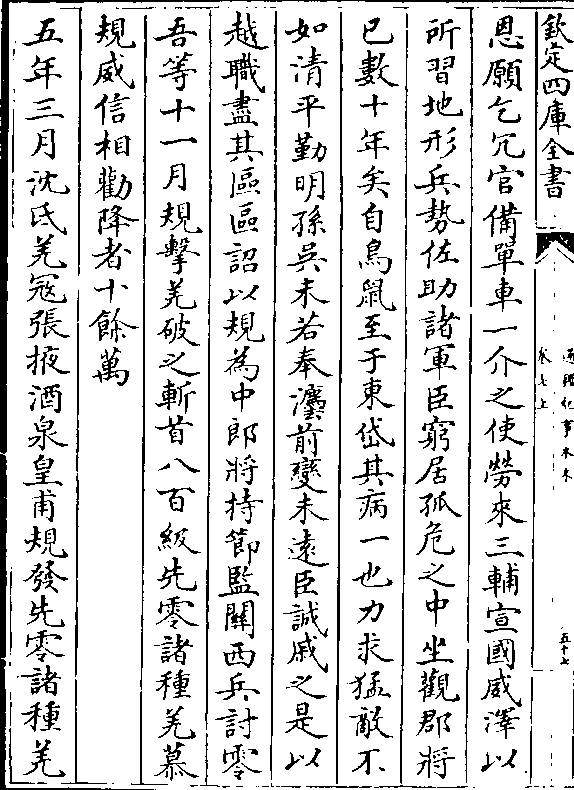 欽定四庫全書
通鑑紀事本末
卷七上
五十七
恩願乞冗官備單車一介之使勞來三輔宣國威澤以
所習地形兵勢佐助諸軍臣窮居孤危之中坐觀郡將
已數十年矣自鳥鼠至于東岱其病一也力求猛敵不
如清平勤明孫吳未若奉灋前變未遠臣誠戚之是以
越職盡其區區詔以規為中郎將持節監關西兵討零
吾等十一月規擊羌破之斬首八百級先零諸種羌慕
規威信相勸降者十餘萬
五年三月沈氏羌冦張掖酒泉皇甫規發先零諸種羌